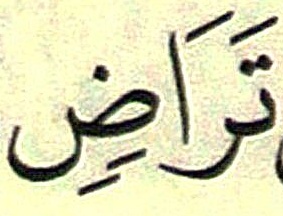 تَرَاضٍ